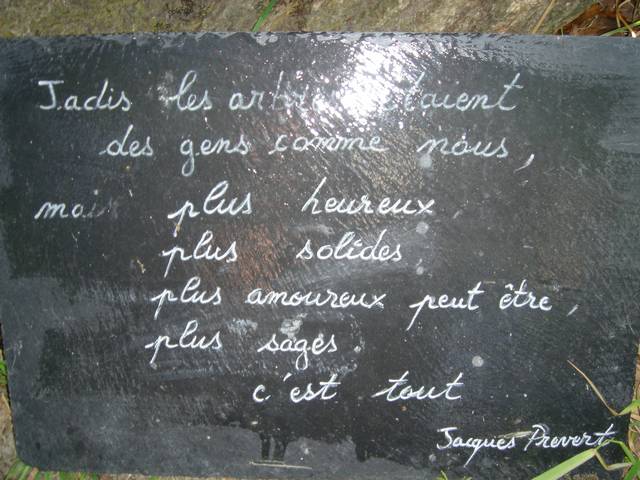 Jadis les arbres étaient
des gens comme nous,
mais plus heureux
plus solides,
plus amoureux peut être,
plus sages
c'est tout
Jacques Prevert